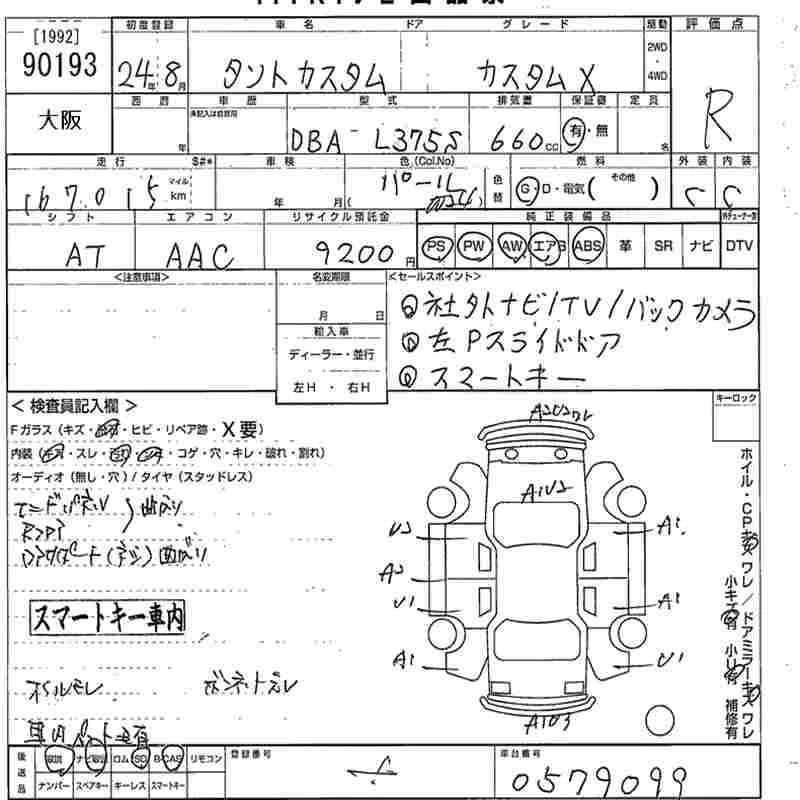 [1992]
90193
初度登録 車名 ドア グレード 駆動 評価点
24年8月 タントカスタム カスタムX 2WD・4WD R
大阪
西暦 車歴 型式 排気量 保証書 定員
未記入は自家用
年 DBA-L375S 660cc 有・無 名
走行 S#* 車検 色(Col.No) 燃料 外装 内装
167015 マイル km 年 月 パール 色替 G・D・電気( その他 ) C C
シフト エアコン リサイクル預託金 純正装備品
AT AAC 9200円 PS PW AW エアB ABS 革 SR ナビ DTV
<注意事項> 名変期限 <セールスポイント>
月 日
輸入車
ディーラー・並行
左H・右H
◎社外ナビ/TV/バックカメラ
◎左Pスライドドア
◎スマートキー
キーロック
<検査員記入欄>
Fガラス(キズ・ ・ヒビ・リペア跡・X要)
内装( ・スレ・ ・ ・コゲ・穴・キレ・破れ・割れ)
オーディオ(無し・穴)/タイヤ(スタッドレス)
エンドパネル 曲がり
曲がり
スマートキー車内
オイルモレ ボンネットズレ
A2U2ワレ
A1U2
U2
A2
U1
A1
A1
A1
U1
A1
ホイル・CPキズ ワレ/ドアミラーキズ ワレ
小キズ有 小U有 補修有
後送品 取説 ナビ取説 ロム SD B-CAS リモコン
ナンバー スペアキー キーレス スマートキー
登録番号
車台番号
0579099